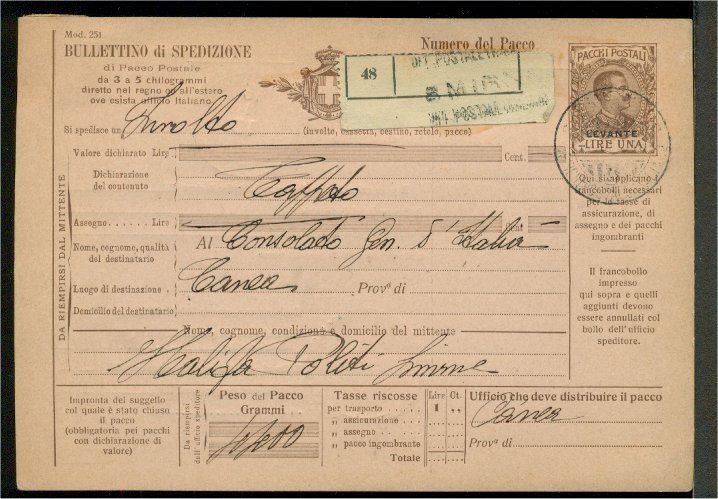 Mod. 251
BULLETTINO di SPEDIZIONE
di Pacco Postale
da 3 a 5 chilogrammi
diretto nel regno od all'estero
ove esista ufficio Italiano
Numero del Pacco
48
SMIRNE
PACCHI POSTALI
LEVANTE
LIRE UNA
Si spedisce un Involto (involto, cassetta, cestino, rotolo, pacco)
Valore dichiarato Lire Cent.
Dichiarazione
del contenuto
Tappeto
Assegno...... Lire Cent
Nome, cognome, qualità
del destinatario
Al Consolato Gen. d'Italia
Luogo di destinazione. Canea Provª di
Domicilio del destinatario
Nome, cognome, condizione e domicilio del mittente
Politi Smirne
DA RIEMPIRSI DAL MITTENTE
Qui si applicano i
francobolli necessari
per le tasse di
assicurazione, di
assegno e dei pacchi
ingombranti
Il francobollo
impresso
qui sopra e quelli
aggiunti devono
essere annullati col
bollo dell'ufficio
speditore.
Impronta del suggello
col quale è stato chiuso
il pacco
(obbligatoria pei pacchi
con dichiarazione di
valore)
Da riempirsi
dall'ufficio speditore
Peso del Pacco
Grammi
Tasse riscosse Lire Ct.
per trasporto ..... 1 ,,
„ assicurazione ...
„ assegno .....
„ pacco ingombrante
Totale ...
Ufficio che deve distribuire il pacco
Canea
Provª di